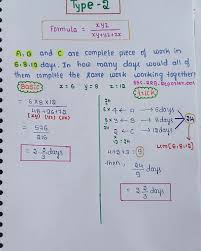 Type - 2
Formula = xyz
xy+yz+zx
A, B and C are complete piece of work in
6, 8, 12 days. In how many days would all of
them complete the same work working together?
Basic
x = 6 y = 8 z = 12
= 6×8×12
48+96+72
(xy) (yz) (zx)
= 576
216
= 2 2/3 days
Trick
24
4 ← A → 6 days
3 ← B → 8 days
2 ← C → 12 days
24
LCM (6,8,12)
4+3+2 = 9
then, 24/9 days
= 2 2/3 days